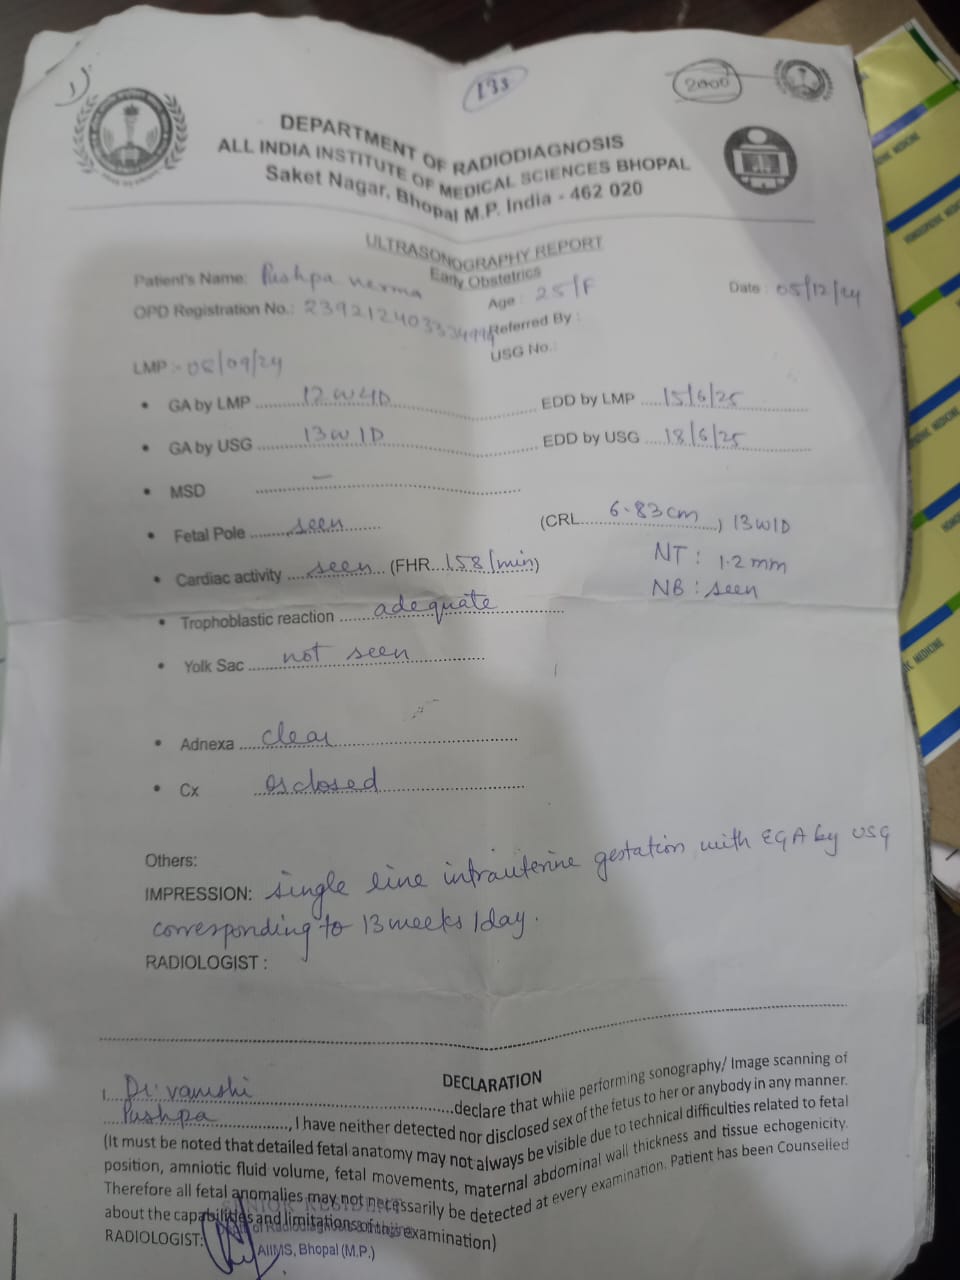 1)
133
2000
DEPARTMENT OF RADIODIAGNOSIS
ALL INDIA INSTITUTE OF MEDICAL SCIENCES BHOPAL
Saket Nagar, Bhopal M.P. India - 462 020
ULTRASONOGRAPHY REPORT
Early Obstetrics
Patient's Name: Pushpa verma
Age : 25/F
Date : 05/12/24
OPD Registration No.:
Referred By :
USG No.:
LMP :- 08/09/24
• GA by LMP 12W4D EDD by LMP 15/6/25
• GA by USG 13W1D EDD by USG 18/6/25
• MSD –
• Fetal Pole seen (CRL 6.83cm ) 13W1D
NT : 1.2 mm
• Cardiac activity seen (FHR 158/min)
NB : seen
• Trophoblastic reaction adequate
• Yolk Sac not seen
• Adnexa clear
• Cx os closed
Others:
IMPRESSION: single line intrauterine gestation with EGA by USG
corresponding to 13 weeks 1day.
RADIOLOGIST :
DECLARATION
I, Dr. vamshi declare that while performing sonography/ Image scanning of
Pushpa , I have neither detected nor disclosed sex of the fetus to her or anybody in any manner.
(It must be noted that detailed fetal anatomy may not always be visible due to technical difficulties related to fetal
position, amniotic fluid volume, fetal movements, maternal abdominal wall thickness and tissue echogenicity.
Therefore all fetal anomalies may not necessarily be detected at every examination. Patient has been Counselled
about the capabilities and limitations of this examination)
RADIOLOGIST:
AIIMS, Bhopal (M.P.)